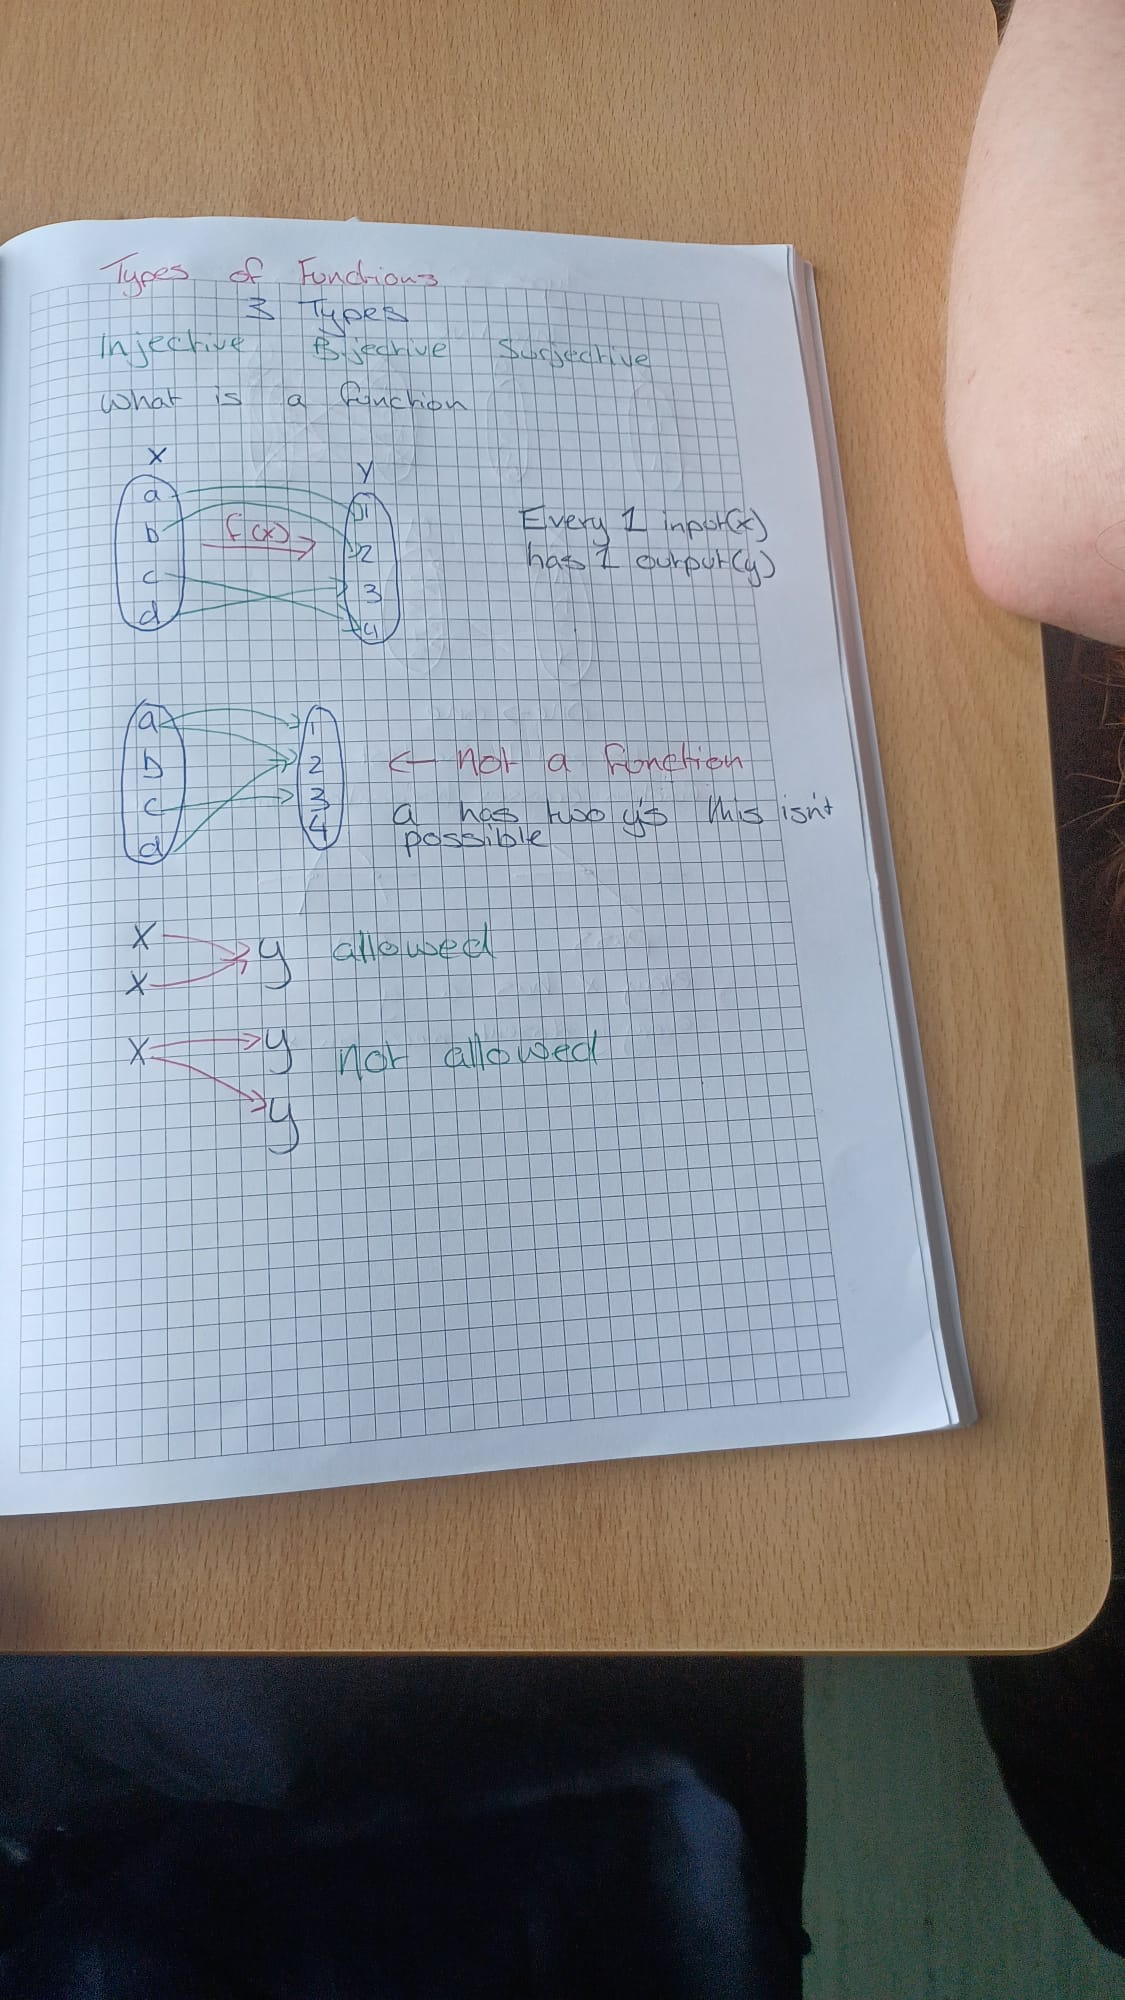 Types of Functions
3 Types
Injective Bijective Surjective
What is a function
X Y
a 1
b f(x) 2
c 3
d 4
Every 1 input(x)
has 1 output(y)
a 1
b 2
c 3
d 4
← not a function
a has two y's this isn't
possible
X
X y allowed
X y not allowed
y